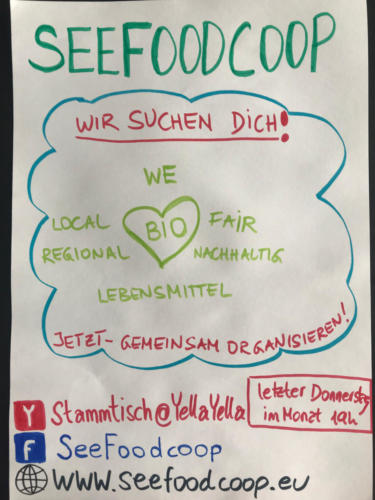 SEEFOODCOOP
WIR SUCHEN DICH!
WE
LOCAL BIO FAIR
REGIONAL NACHHALTIG
LEBENSMITTEL
JETZT - GEMEINSAM ORGANISIEREN!
Y Stammtisch@YellaYella
letzter Donnerstag
im Monat 19h
F SeeFoodcoop
www.seefoodcoop.eu